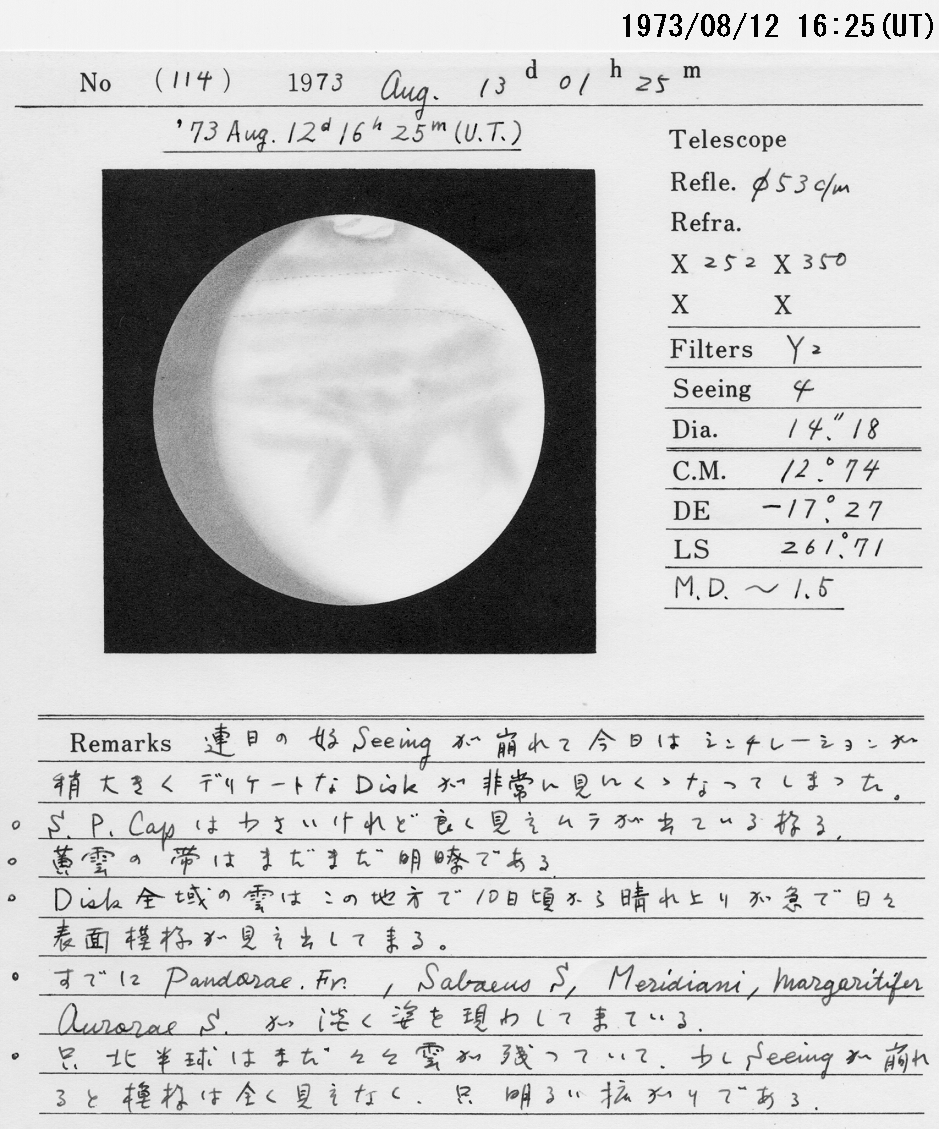 1973/08/12 16:25(UT)
No (114) 1973 Aug. 13 d 01 h 25 m
'73 Aug. 12d 16h 25m (U.T.)
Telescope
Refle. φ53c/m
Refra.
X 252 X 350
X X
Filters Y2
Seeing 4
Dia. 14."18
C.M. 12.°74
DE -17.°27
LS 261.°71
M.D. ~ 1.5
Remarks 連日の好Seeingが崩れて今日はシンチレーションが
稍大きくデリケートなDiskが非常に見にくくなってしまった。
○ S. P. Capは小さいけれど良く見えムラが出ている様る.
○ 黄雲の帯はまだまだ明瞭である
○ Disk全域の雲はこの地方で10日頃から晴れ上りが急で日々
表面模様が見え出して来る。
○ すでに Pandorae. Fr. , Sabaeus S, Meridiani, Margaritifer
Aurorae S. が淡く姿を現わして来ている.
○ 只北半球はまだ々々雲が残っていて. 少しSeeingが崩れ
ると模様は全く見えなく. 只明るい拡がりである.